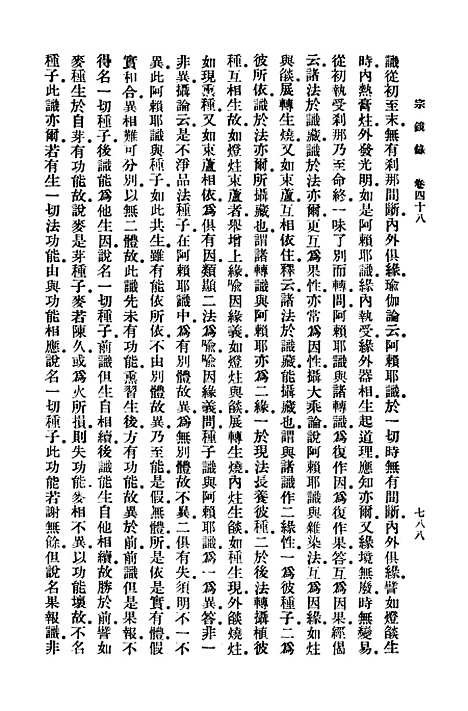 宗鏡錄　卷四十八
七八八
識從初至末無有刹那間斷內外俱緣瑜伽論云阿賴耶識於一切時無有間斷內外俱緣譬如燈燄生
時內熱膏炷外發光明如是阿賴耶識緣內執受緣外器相生起道理應知亦爾又緣境無廢時無變易
從初執受刹那乃至命終一味了別而轉問阿賴耶識與諸轉識爲復作因爲復作果答互爲因果經偈
云諸法於識藏識於法亦爾更互爲果性亦常爲因性攝大乘論說阿賴耶識與雜染法互爲因緣如炷
與燄展轉生燒又如束蘆互相依住釋云諸法於識藏能攝藏也謂與諸識作二緣性一爲彼種子二爲
彼所依識於法亦爾所攝藏也謂諸轉識與阿賴耶亦爲二緣一於現法長養彼種二於後法轉攝植彼
種互相生故如燈炷束蘆者舉增上緣喻因緣義如燈炷與燄展轉生燒內炷生燄如種生現外燄燒炷
如現熏種又如束蘆相依爲俱有因類顯二法爲喻因緣義問種子識與阿賴耶識爲一爲異答非一
非異攝論云是不淨品法種子在阿賴耶識中爲有別體故異爲無別體故不異二俱有失須明不一不
異此阿賴耶識與種子如此共生雖有能依所依不由別體故異乃至能是假無體所是依是實有體假
實和合異相難可分別以無二體故此識先未有功能熏習生後方有功能故異於前前識但是果報不
得名一切種子後識能爲他生因說名一切種子前識但生自相續後識能生自他相續故勝於前譬如
麥種生於自芽有功能故說麥是芽種子麥若陳久或爲火所損則失功能麥相不異以功能壞故不名
種子此識亦爾若有生一切法功能由與功能相應說名一切種子此功能若謝無餘但說名果報識非